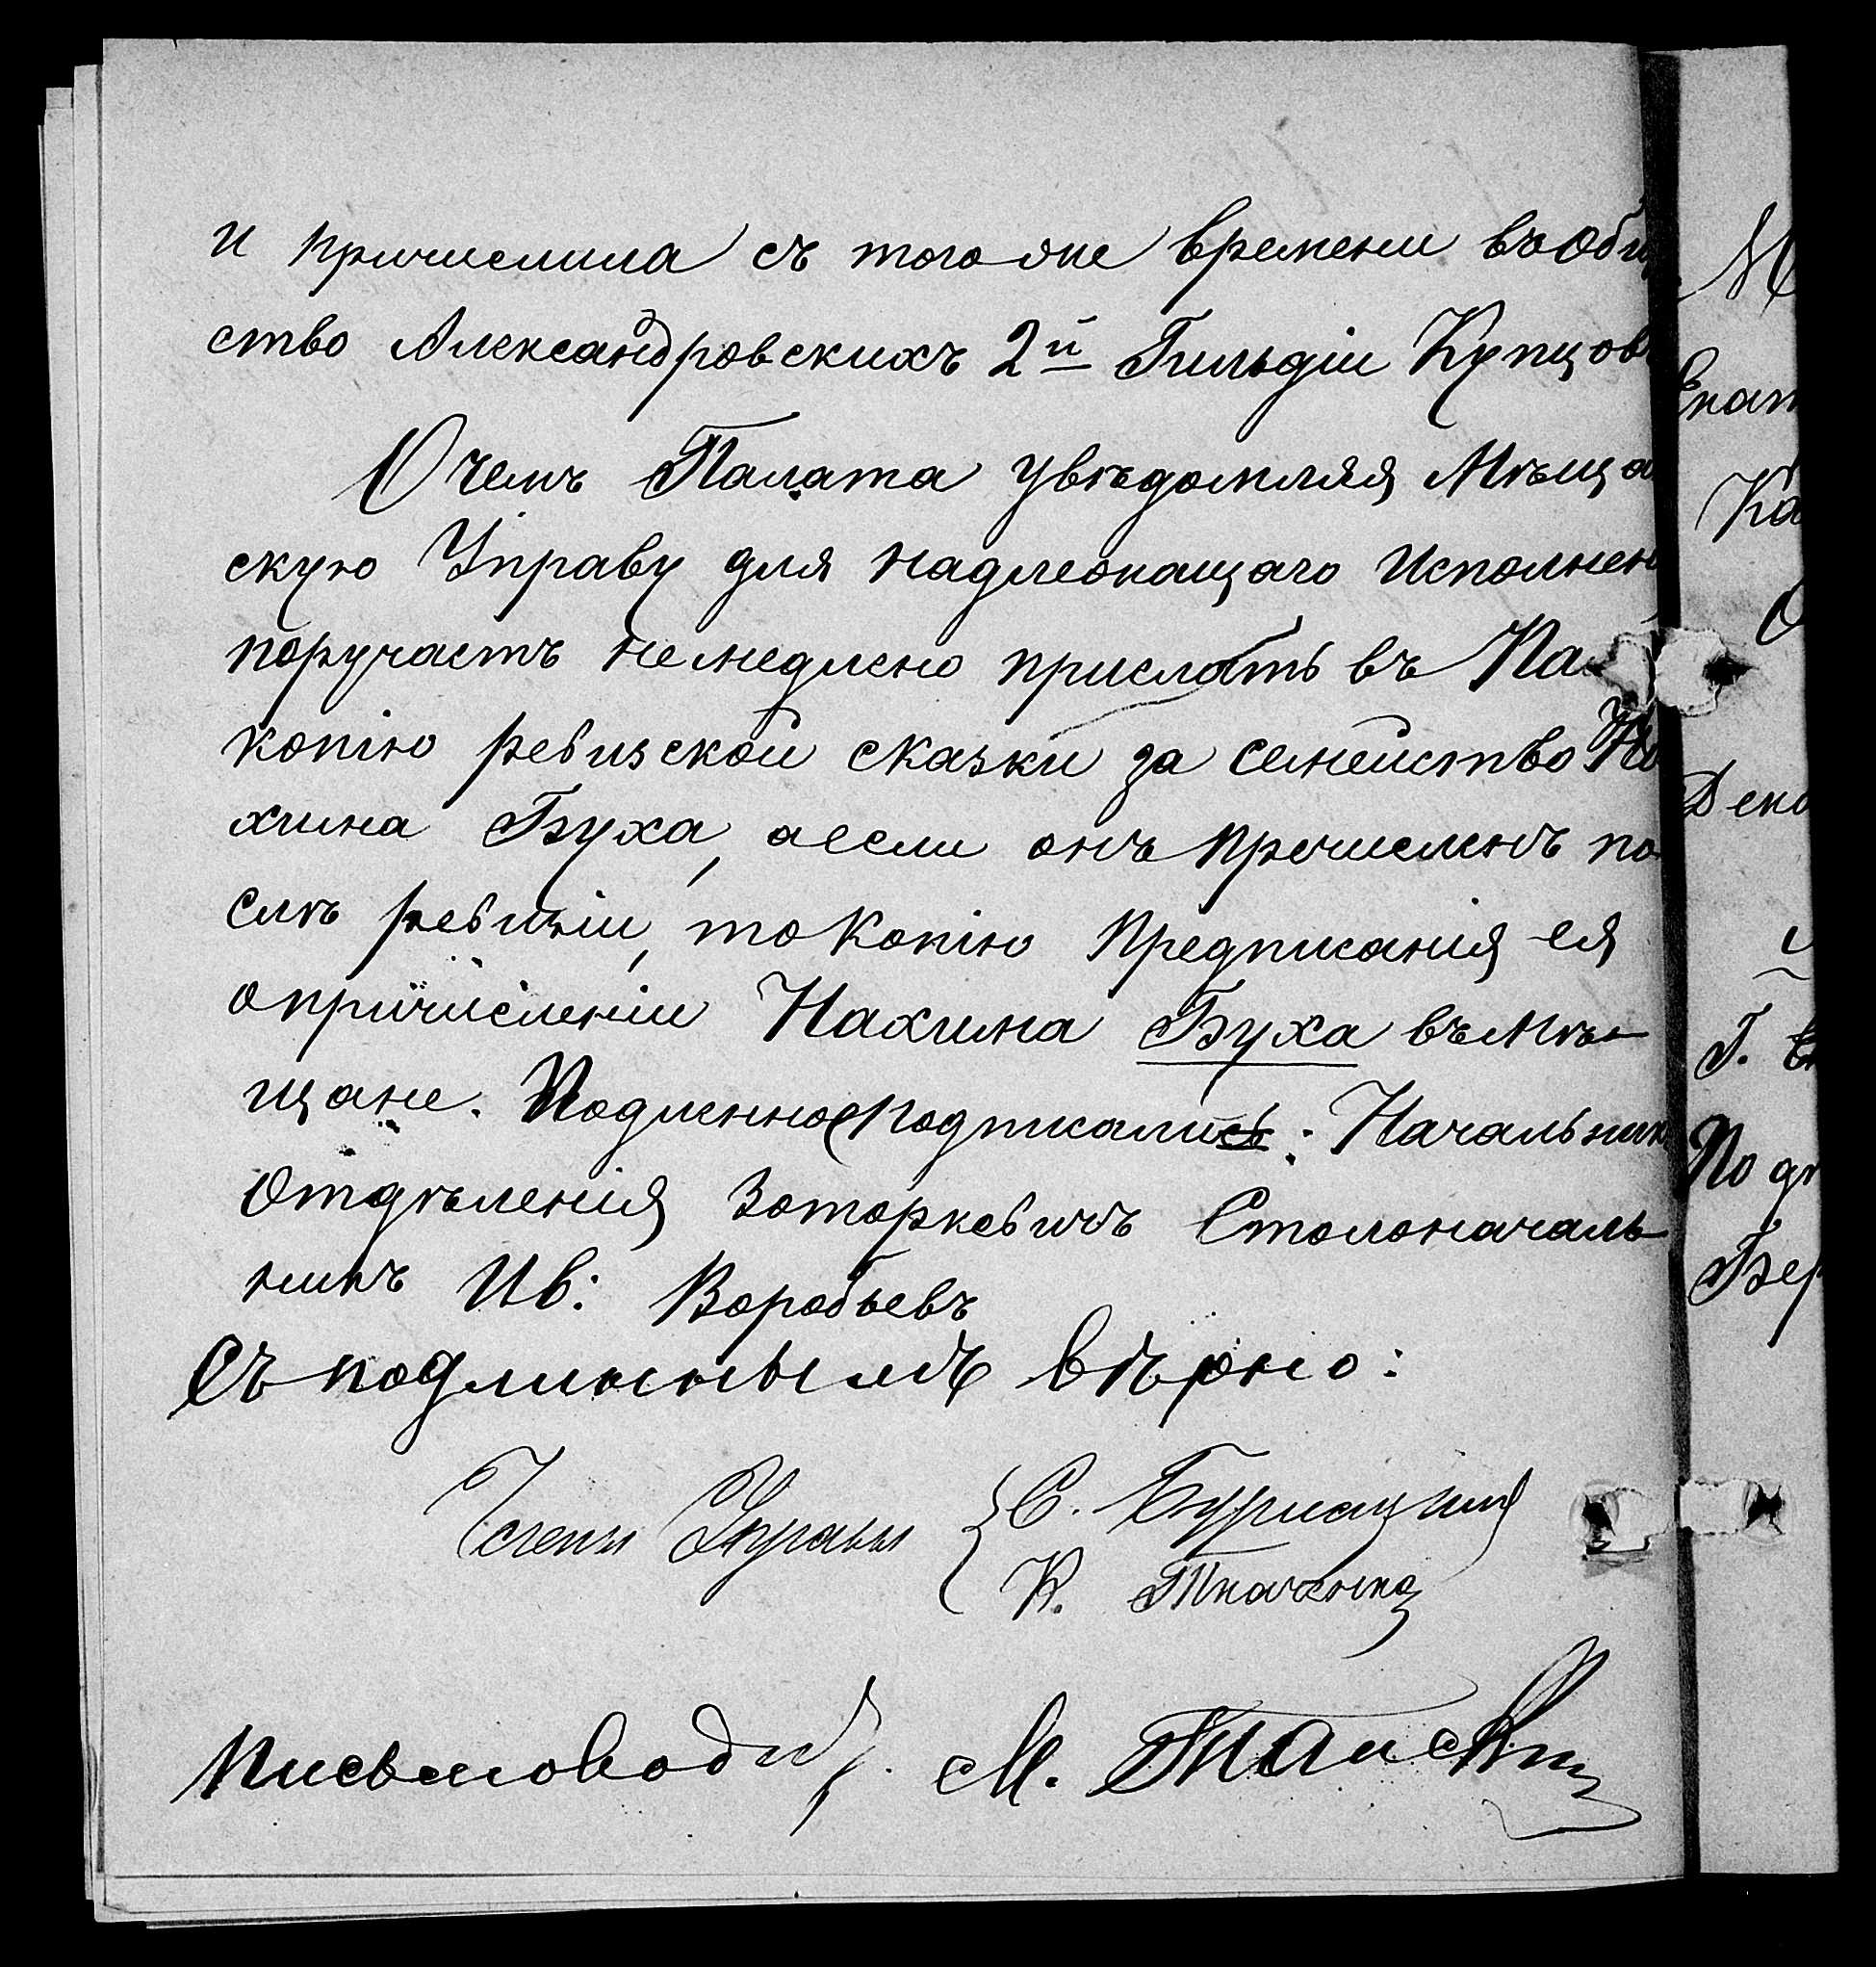 и причислила съ того же времени въ Общ
ство Александровскихъ 2й Гильдіи Купцовъ
О чемъ Палата увѣдомляя Мѣща
скую Управу для надлежащаго исполнен
поручаетъ немедлено прислать въ Па
копію ревизской сказки за семейство На
хима Буха, а если онъ причисленъ по
слѣ ревизіи, то копію предписанія ея
о причисленіи Нахима Буха въ мѣ-
щане. Подленное подписали: Начальник
Отдѣленія Столоначаль-
никъ Ив: Воробьевъ
Съ подлиннымъ вѣрно:
Члены Управы С.
К. Ткаченко
Письмоводит. М.
М
Екат
Ка
О
Г.
Под
Бер